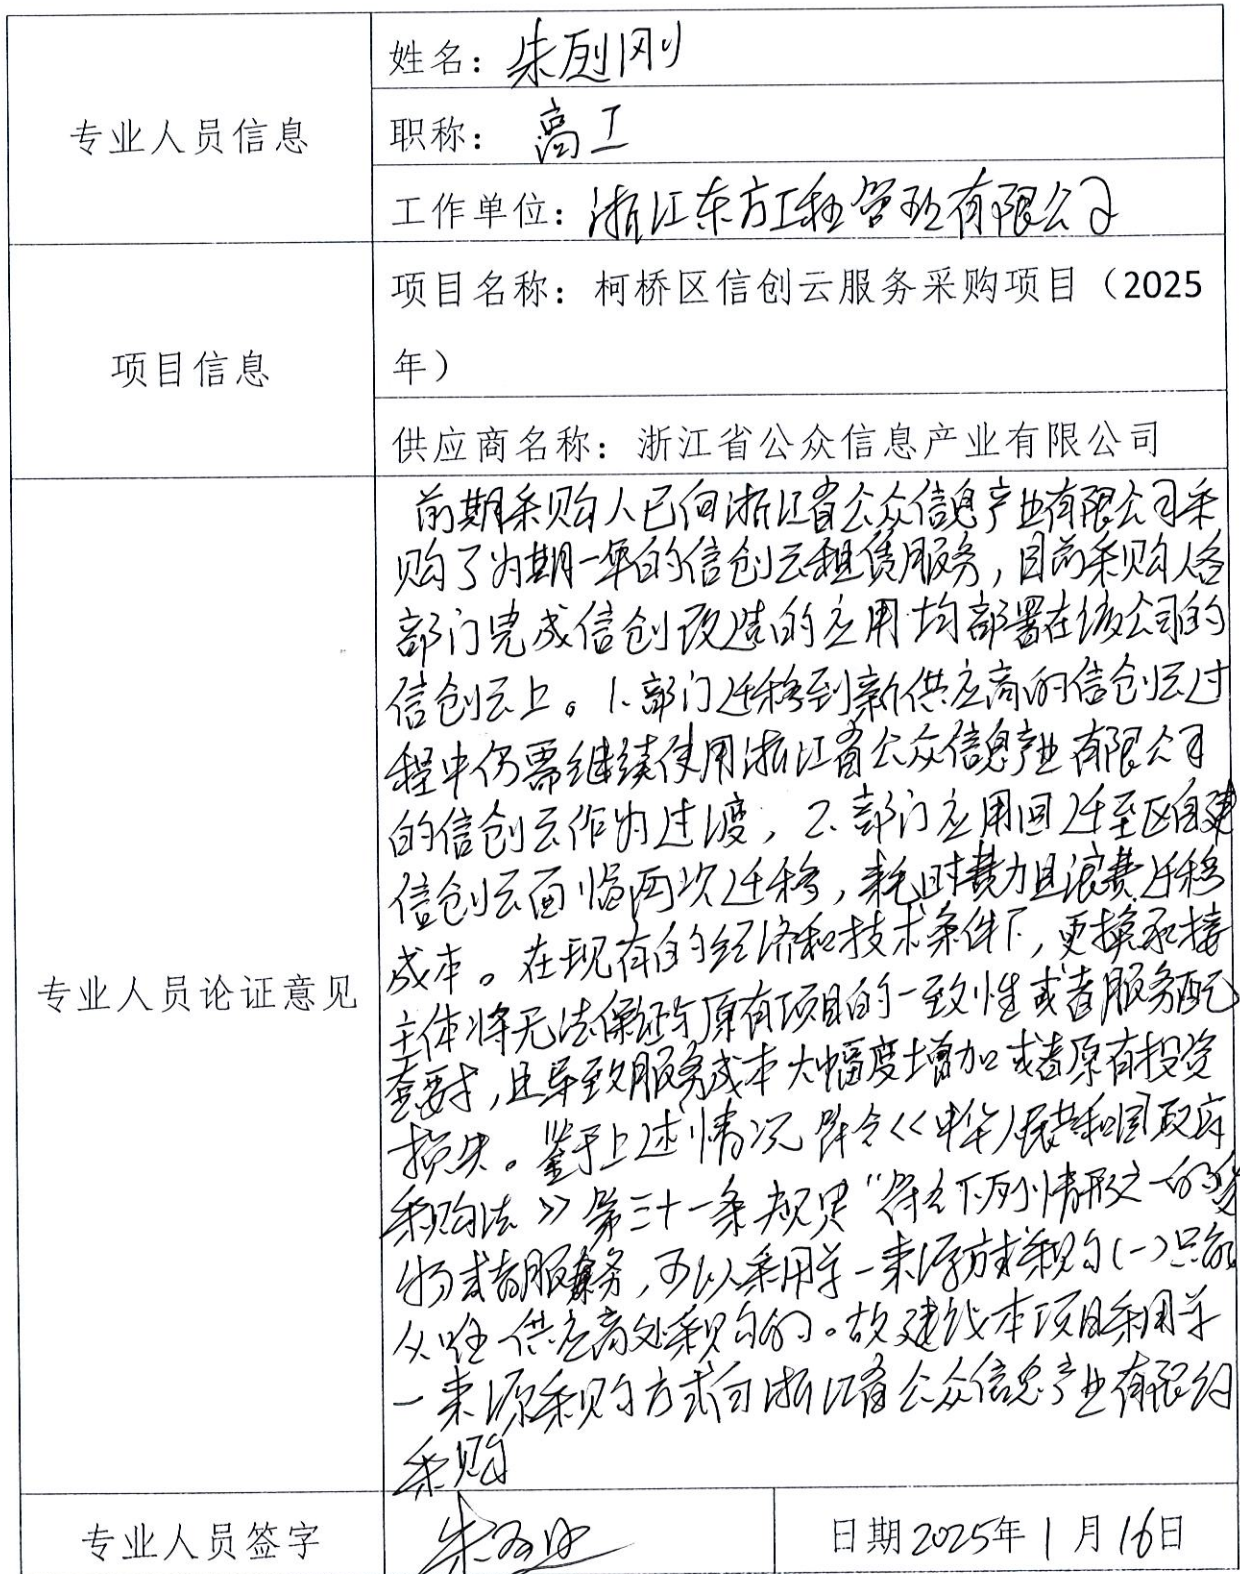 专业人员信息
姓名：朱烈刚
职称：高工
工作单位：浙江东方工程管理有限公司
项目信息
项目名称：柯桥区信创云服务采购项目（2025
年）
供应商名称：浙江省公众信息产业有限公司
专业人员论证意见
前期采购人已向浙江省公众信息产业有限公司采
购了为期一年的信创云租赁服务，目前采购人各
部门完成信创改造的应用均部署在该公司的
信创云上。1.部门迁移到新供应商的信创云过
程中仍需继续使用浙江省公众信息产业有限公司
的信创云作为过渡，2.部门应用回迁至区自建
信创云面临两次迁移，耗时费力且浪费迁移
成本。在现有的经济和技术条件下，更换承接
主体将无法保证与原有项目的一致性或者服务配
套要求，且导致服务成本大幅度增加或者原有投资
损失。鉴于上述情况符合《中华人民共和国政府
采购法》第三十一条规定“符合下列情形之一的货
物或者服务，可以采用单一来源方式采购(一)只能
从唯一供应商处采购的。故建议本项目采用单
一来源采购方式向浙江省公众信息产业有限公司
采购
专业人员签字
日期2025年1月16日